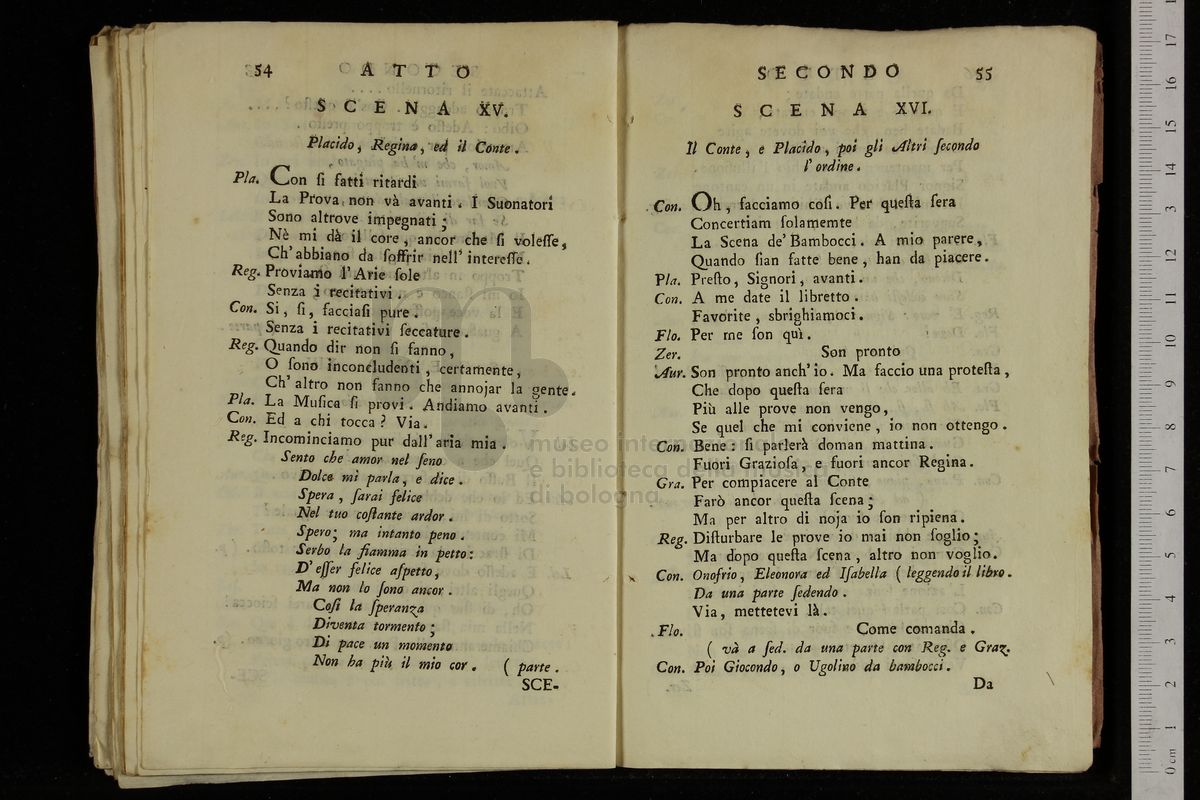 54 ATTO
SCENA XV.
Placido, Regina, ed il Conte.
Pla. Con ſi fatti ritardi
La Prova non và avanti. I Suonatori
Sono altrove impegnati;
Nè mi dà il core, ancor che ſi voleſſe,
Ch'abbiano da ſoffrir nell'intereſſe.
Reg. Proviamo l'Arie ſole
Senza i recitativi.
Con. Si, ſi, facciaſi pure.
Senza i recitativi ſeccature.
Reg. Quando dir non ſi fanno,
O ſono inconcludenti, certamente,
Ch'altro non fanno che annojar la gente.
Pla. La Muſica ſi provi. Andiamo avanti.
Con. Ed a chi tocca? Via.
Reg. Incominciamo pur dall'aria mia.
Sento che amor nel ſeno
Dolce mi parla, e dice.
Spera, ſarai felice
Nel tuo coſtante ardor.
Spero; ma intanto peno.
Serbo la fiamma in petto:
D'eſſer felice aſpetto,
Ma non lo ſono ancor.
Coſì la ſperanza
Diventa tormento;
Di pace un momento
Non ha più il mio cor. (parte.
SCE-
SECONDO 55
SCENA XVI.
Il Conte, e Placido, poi gli Altri ſecondo
l'ordine.
Con. Oh, facciamo coſì. Per queſta ſera
Concertiam ſolamemte
La Scena de' Bambocci. A mio parere,
Quando ſian fatte bene, han da piacere.
Pla. Preſto, Signori, avanti.
Con. A me date il libretto.
Favorite, sbrighiamoci.
Flo. Per me ſon quì.
Zer. Son pronto
Aur. Son pronto anch'io. Ma faccio una proteſta,
Che dopo queſta ſera
Più alle prove non vengo,
Se quel che mi conviene, io non ottengo.
Con. Bene: ſi parlerà doman mattina.
Fuori Grazioſa, e fuori ancor Regina.
Gra. Per compiacere al Conte
Farò ancor queſta ſcena;
Ma per altro di noja io ſon ripiena.
Reg. Diſturbare le prove io mai non ſoglio;
Ma dopo queſta ſcena, altro non voglio.
Con. Onofrio, Eleonora ed Iſabella (leggendo il libro.
Da una parte ſedendo.
Via, mettetevi là.
Flo. Come comanda.
(và a ſed. da una parte con Reg. e Graz.
Con. Poi Giocondo, o Ugolino da bambocci.
Da
museo internazionale
e biblioteca della musica
di bologna